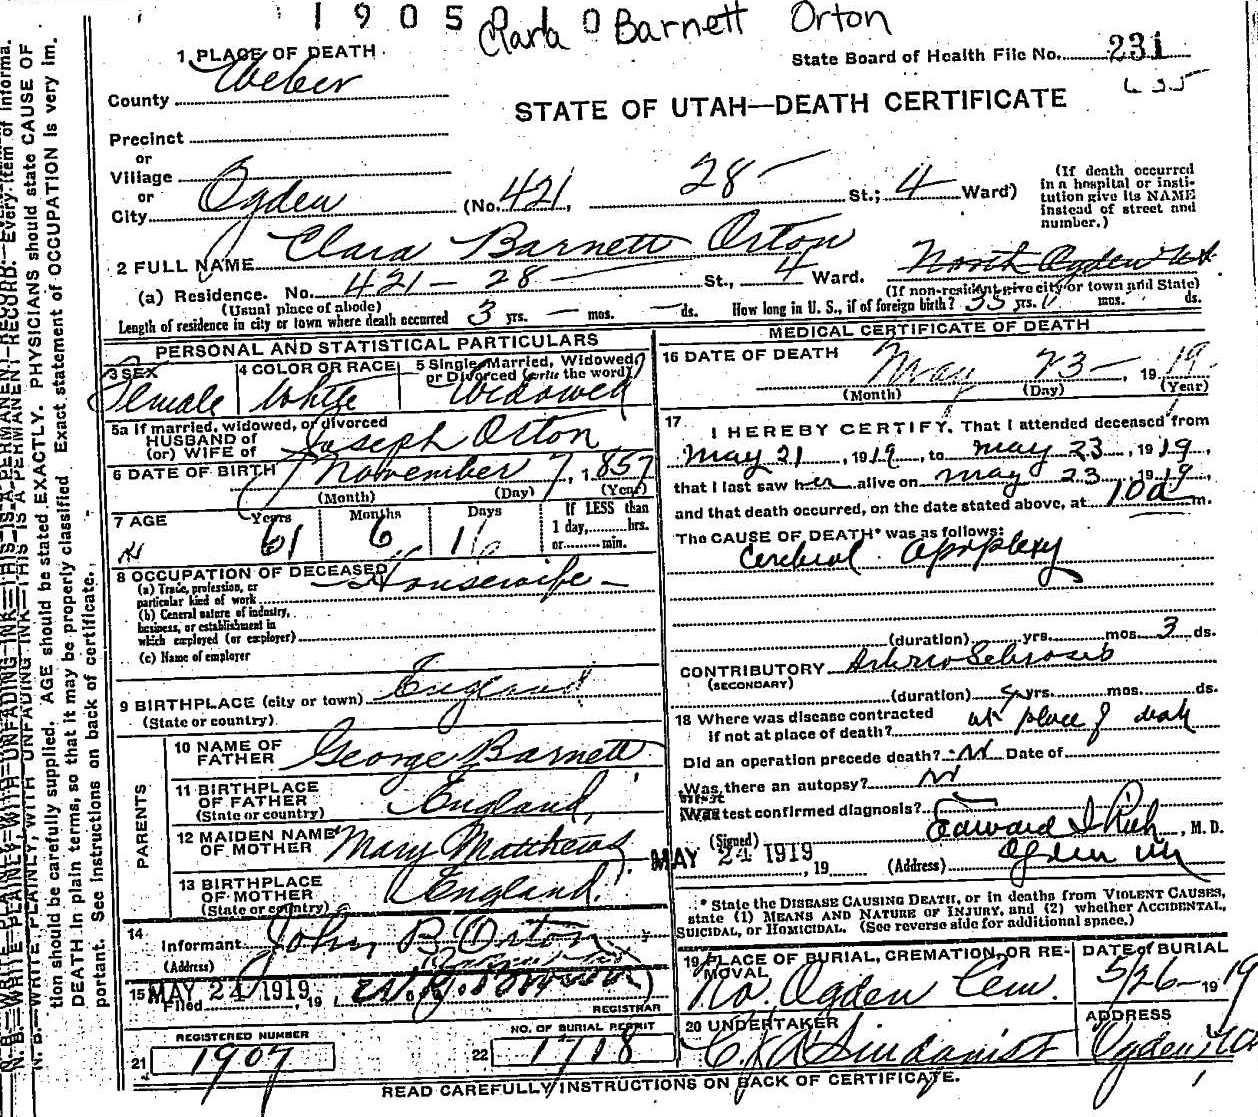 1 9 0 5 1 0 Clara Barnett Orton
1 PLACE OF DEATH
State Board of Health File No. 231
635
County Weber
STATE OF UTAH—DEATH CERTIFICATE
Precinct
or
Village
or
City Ogden (No. 421, 28 St.; 4 Ward)
(If death occurred in a hospital or insti-
tution give its NAME
instead of street and
number.)
2 FULL NAME Clara Barnett Orton
(a) Residence. No. 421 - 28 St., 4 Ward. North Ogden Ut
(Usual place of abode) (If non-resident give city or town and State)
Length of residence in city or town where death occurred 3 yrs. — mos. — ds. How long in U. S., if of foreign birth? 35 yrs. mos. ds.
PERSONAL AND STATISTICAL PARTICULARS
3 SEX
Female
4 COLOR OR RACE
White
5 Single, Married, Widowed,
or Divorced (write the word)
Widowed
5a If married, widowed, or divorced
HUSBAND of
(or) WIFE of Joseph Orton
6 DATE OF BIRTH November 7, 1857
(Month) (Day) (Year)
7 AGE Years Months Days If LESS than
61 6 16 1 day,........hrs.
or..........min.
8 OCCUPATION OF DECEASED Housewife
(a) Trade, profession, or
particular kind of work
(b) General nature of industry,
business, or establishment in
which employed (or employer)
(c) Name of employer
9 BIRTHPLACE (city or town) England
(State or country)
PARENTS
10 NAME OF
FATHER George Barnett
11 BIRTHPLACE
OF FATHER England
(State or country)
12 MAIDEN NAME
OF MOTHER Mary Matthews
13 BIRTHPLACE
OF MOTHER England
(State or country)
14
Informant John B. Orton
(Address)
15 MAY 24 1919
Filed , 19
REGISTRAR
REGISTERED NUMBER
21 1907
NO. OF BURIAL PERMIT
22 1718
MEDICAL CERTIFICATE OF DEATH
16 DATE OF DEATH May 23, 1919
(Month) (Day) (Year)
17 I HEREBY CERTIFY, That I attended deceased from
May 21, 1919, to May 23, 1919,
that I last saw her alive on May 23, 1919,
and that death occurred, on the date stated above, at 10 a m.
The CAUSE OF DEATH* was as follows:
Cerebral Apoplexy
(duration) yrs. mos. 3 ds.
CONTRIBUTORY Arterio Sclerosis
(SECONDARY)
(duration) yrs. mos. ds.
18 Where was disease contracted
if not at place of death? at place of death
Did an operation precede death? N Date of
Was there an autopsy? N
What test confirmed diagnosis?
(Signed) Edward I Rich, M. D.
MAY 24 1919, 19 (Address) Ogden Ut
* State the DISEASE CAUSING DEATH, or in deaths from VIOLENT CAUSES,
state (1) MEANS AND NATURE OF INJURY, and (2) whether ACCIDENTAL,
SUICIDAL, or HOMICIDAL. (See reverse side for additional space.)
19 PLACE OF BURIAL, CREMATION, OR RE-
MOVAL
No. Ogden Cem.
DATE of BURIAL
5/26 - 1919
20 UNDERTAKER
ADDRESS
Ogden Utah
READ CAREFULLY INSTRUCTIONS ON BACK OF CERTIFICATE.
N. B.—WRITE PLAINLY, WITH UNFADING INK—THIS IS A PERMANENT RECORD. Every item of informa-
tion should be carefully supplied. AGE should be stated EXACTLY. PHYSICIANS should state CAUSE OF
DEATH in plain terms, so that it may be properly classified. Exact statement of OCCUPATION is very im-
portant. See instructions on back of certificate.